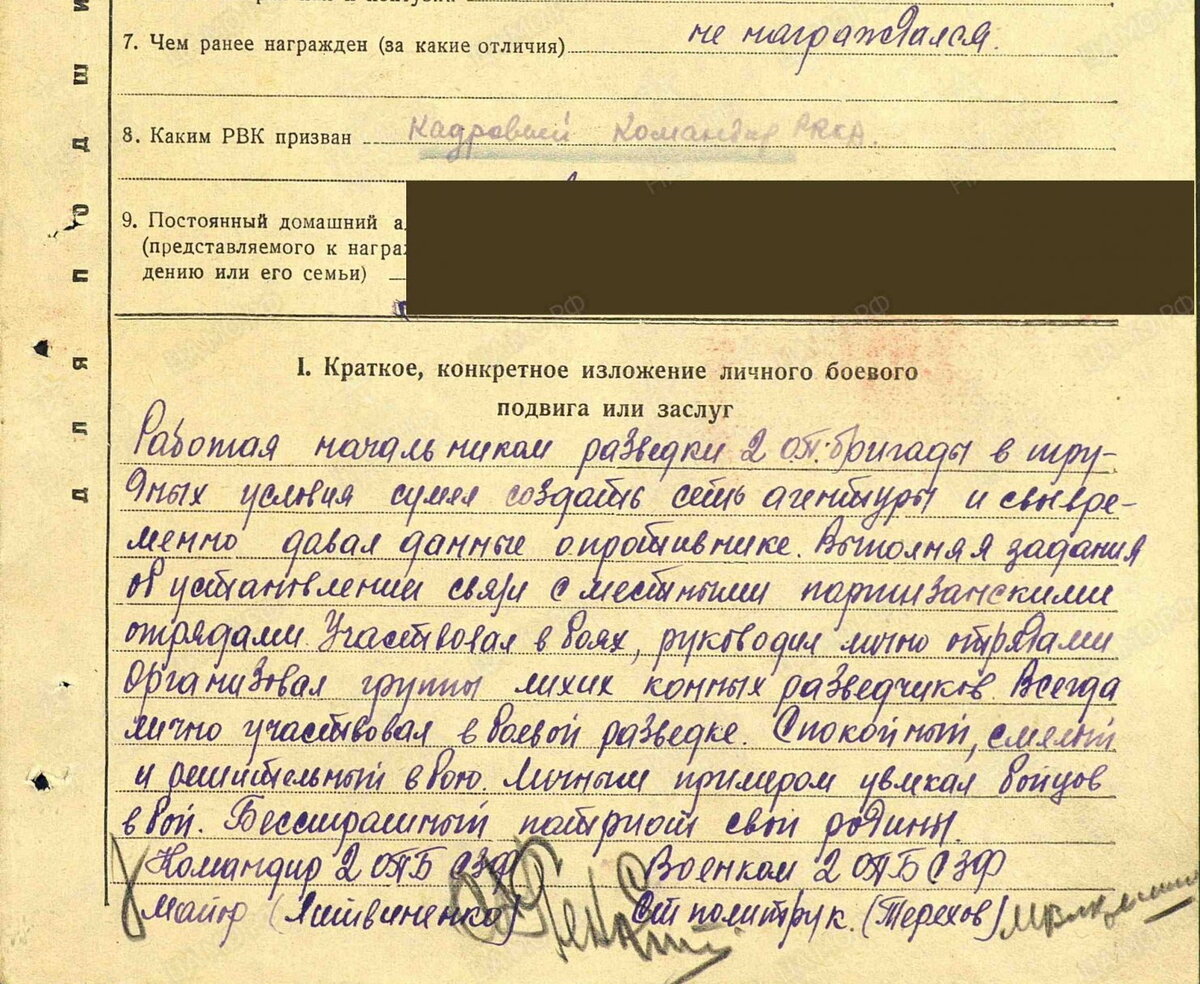 7. Чем ранее награжден (за какие отличия) не награждался.
8. Каким РВК призван Кадровый Командир РККА.
9. Постоянный домашний а
(представляемого к награ
дению или его семьи)
I. Краткое, конкретное изложение личного боевого
подвига или заслуг
Работая начальником разведки 2 О.П. бригады в тру-
дных условия сумел создать сеть агентуры и свыевре-
менно давал данные о противнике. Выполняя задания
об установлении связи с местными партизанскими
отрядами. Участвовал в боях, руководил лично отрядами
Организовал группы лихих конных разведчиков. Всегда
лично участвовал в боевой разведке. Спокойный, смелый
и решительный в бою. Личным примером увлекал бойцов
в бой. Бесстрашный патриот свой родины.
Командир 2 ОПБ СЗФ Военком 2 ОПБ СЗФ
Майор (Литвиненко) Ст политрук. (Терехов)
ДЛЯ ПОДШИ